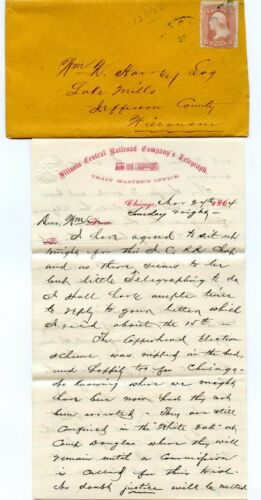 12/1/64
Wm W. Harvey Esq
Lake Mills
Jefferson County
Wisconsin
Illinois Central Railroad Company's Telegraph.
TRAIN MASTER'S OFFICE.
Chicago, Nov 27th 1864
Sunday night
Dear Wm
I have agreed to sit up
tonight for the I C RR Supt
and as there seems to be
but little Telegraphing to do
I shall have ample time
to reply to your letter which
I rec'd about the 15th
The Copperhead Election
scheme was nipped in the bud
and happily too for Chicago
No knowing where we might
have been now had they not
been arrested - They are still
confined in the "White Oak" at
Camp Douglas where they will
remain until a Commission
is called for their trial
No doubt justice will be meted